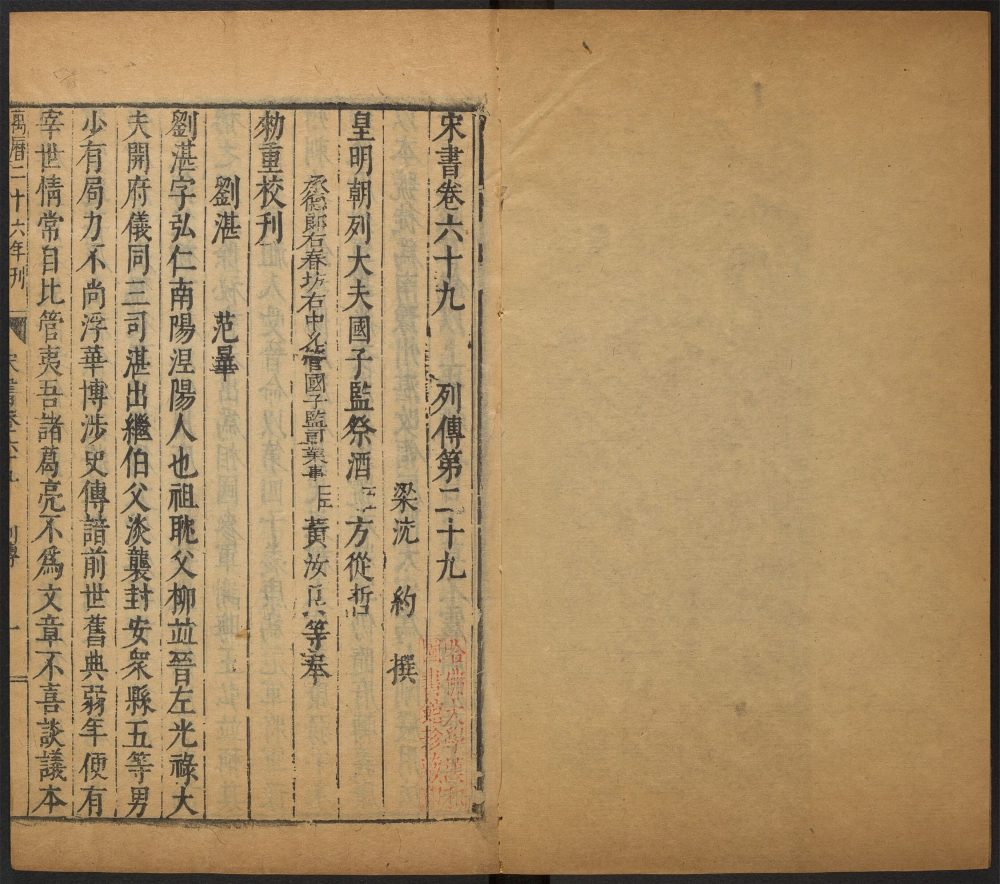 宋書卷六十九　列傳第二十九
梁沈約撰
皇明朝列大夫國子監祭酒臣方從哲
承德郎右春坊右中允管國子監司業事臣黃汝良等奉
勑重校刊
劉湛　范曅
劉湛字弘仁南陽涅陽人也祖耽父柳並晉左光祿大
夫開府儀同三司湛出繼伯父淡襲封安衆縣五等男
少有局力不尚浮華博涉史傳諳前世舊典弱年便有
宰世情常自比管夷吾諸葛亮不爲文章不喜談議本
萬曆二十六年刊　宋書卷六十九　列傳　一
哈佛大學漢和
圖書館珍藏印